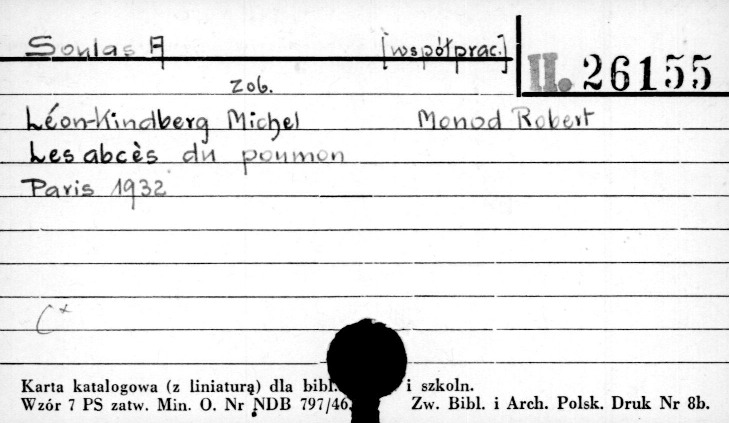 Soulas A [współprac.] II. 26155
zob.
Léon-Kindberg Michel Monod Robert
Les abcès du poumon
Paris 1932
C x
Karta katalogowa (z liniaturą) dla bibl. i szkoln.
Wzór 7 PS zatw. Min. O. Nr NDB 797/46. Zw. Bibl. i Arch. Polsk. Druk Nr 8b.